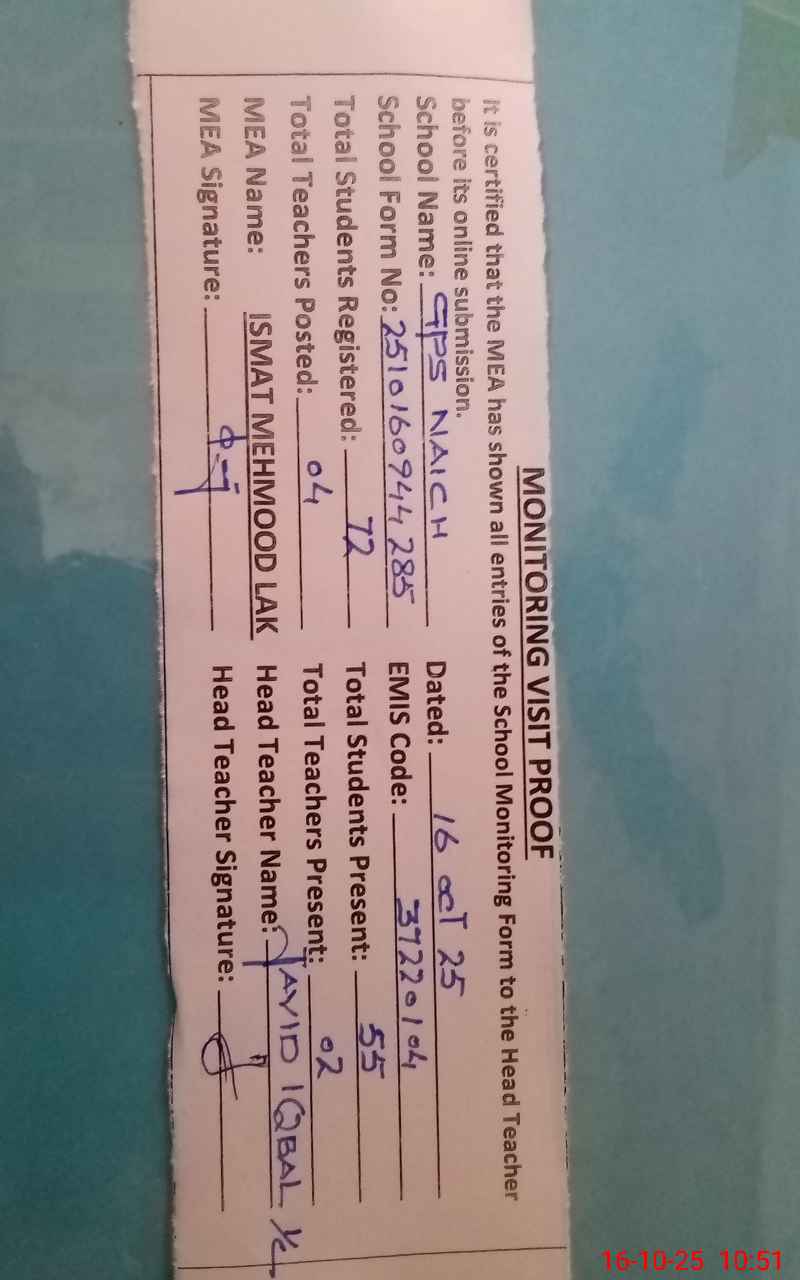 MONITORING VISIT PROOF
It is certified that the MEA has shown all entries of the School Monitoring Form to the Head Teacher
before its online submission.
School Name: GPS NAICH Dated: 16 OCT 25
School Form No: 2510160944285 EMIS Code: 37220104
Total Students Registered: 72 Total Students Present: 55
Total Teachers Posted: 04 Total Teachers Present: 02
MEA Name: ISMAT MEHMOOD LAK Head Teacher Name: JAVID IQBAL
MEA Signature: Head Teacher Signature:
16-10-25 10:51